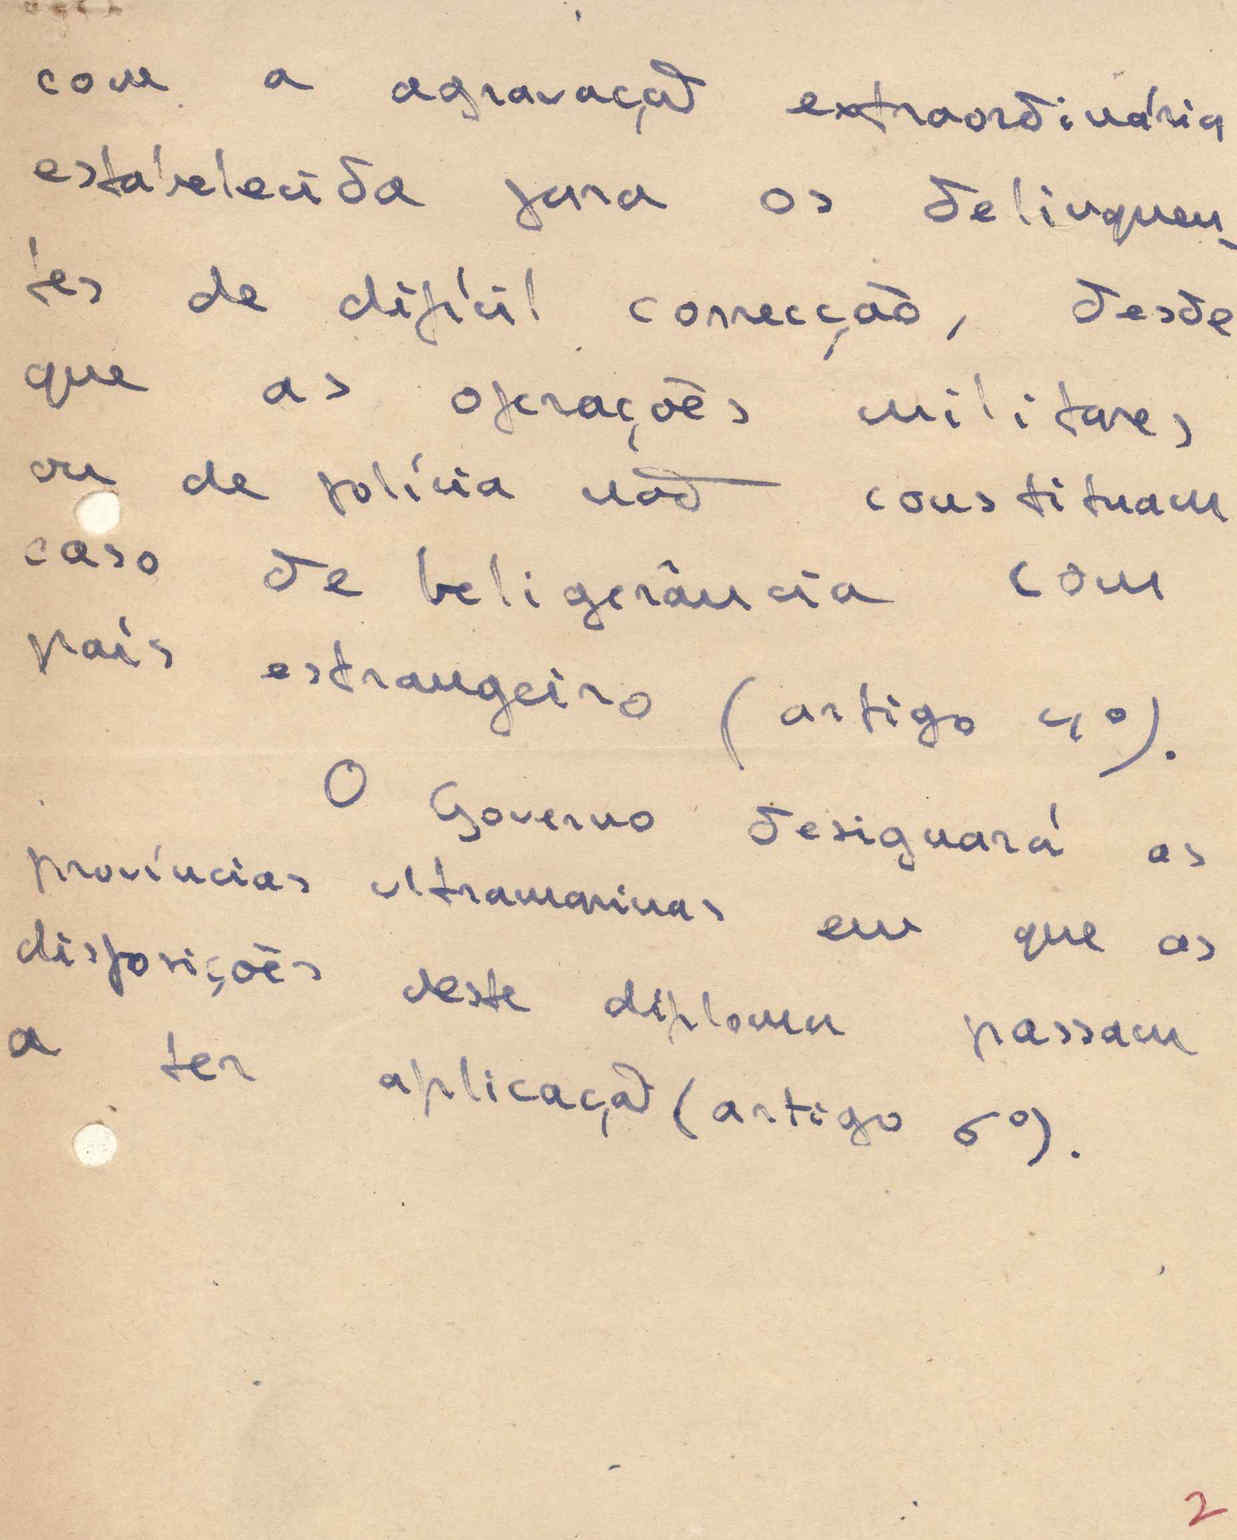 com a agravação extraordinária
estabelecida para os delinquen-
tes de difícil correcção, desde
que as operações militares
ou de polícia não constituam
caso de beligerância com
país estrangeiro (artigo 4º).
O Governo designará as
províncias ultramarinas em que as
disposições deste diploma passam
a ter aplicação (artigo 6º).
2